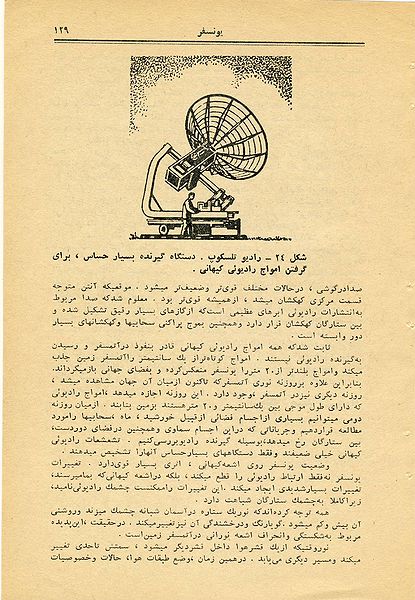 یونسفر
۱۲۹
شکل ۲۴ – رادیو تلسکوپ . دستگاه گیرنده بسیار حساس ، برای
گرفتن امواج رادیوئی کیهانی .
صدادرگوشی ، درحالات مختلف قوی‌تر وضعیف‌تر میشود . موقعیکه آنتن متوجه
قسمت مرکزی کهکشان میشد ، ازهمیشه قوی‌تر بود . معلوم شدکه صدا مربوط
به‌انتشارات رادیوئی ابرهای عظیمی است‌که ازگازهای بسیار رقیق تشکیل شده و
بین ستارگان کهکشان قرار دارد وهمچنین بموج پراکنی سحابیها وکهکشانهای بسیار
دور وابسته است .
ثابت شدکه همه امواج رادیوئی کیهانی قادر بنفوذ درآتمسفر و رسیدن
به‌گیرنده رادیوئی نیستند . امواج کوتاه‌تراز یك سانتیمتر راآتمسفر زمین جذب
میکند وامواج بلندتر از۲۰ متررا یونسفر منعکس‌کرده و بفضای جهانی بازمیگرداند.
بنابراین علاوه برروزنه نوری آتمسفرکه تاکنون ازمیان آن جهان مشاهده میشد ،
روزنه دیگری نیزدر آتمسفر وجود دارد . این روزنه اجازه میدهد ،امواج رادیوئی
که دارای طول موجی بین یك‌سانتیمتر و۲۰ مترهستند بزمین بتابند . ازمیان روزنه
دومی میتوانیم بسیاری ازاجسام فضائی ازقبیل خورشید ، ماه ،سحابیها رامورد
مطالعه قراردهیم وجریاناتی که دراین اجسام سماوی وهمچنین درفضای دوردست،
بین ستارگان رخ میدهد،بوسیله گیرنده رادیوبررسی‌کنیم . تشعشعات رادیوئی
کیهانی خیلی ضعیفند وفقط دستگاههای بسیارحساس آنهارا تشخیص میدهند .
وضعیت یونسفر روی اشعه‌کیهانی ، اثری بسیار قوی‌دارد . تغییرات
یونسفر نه‌فقط ارتباط رادیوئی را قطع میکند ، بلکه دراشعه کیهانی‌که بمامیرسند،
تغییرات بسیارشدیدی ایجاد میکند .این تغییرات راممکنست چشمك رادیوئی‌نامید،
زیراکاملا به‌چشمك ستارگان شباهت دارد .
همه توجه کرده‌اندکه نوریك ستاره درآسمان شبانه چشمك میزند وروشنی
آن بیش وکم میشود ،گویارنگ ودرخشندگی آن نیزتغییرمیکند . درحقیقت ،این‌پدیده
مربوط به‌شکستگی وانحراف اشعه نورانی درآتمسفر زمین‌است .
نوروقتیکه ازیك قشرهوا داخل قشردیگر میشود ، سمتش تاحدی تغییر
میکند ومسیر دیگری می‌یابد . درهمین زمان ،وضع طبقات هوا، حالات وخصوصیات